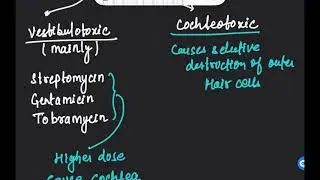 Vestibulotoxic
(mainly)
Streptomycin
Gentamicin
Tobramycin
Higher dose
cause cochlea
Cochleotoxic
Causes selective
destruction of outer
Hair cells